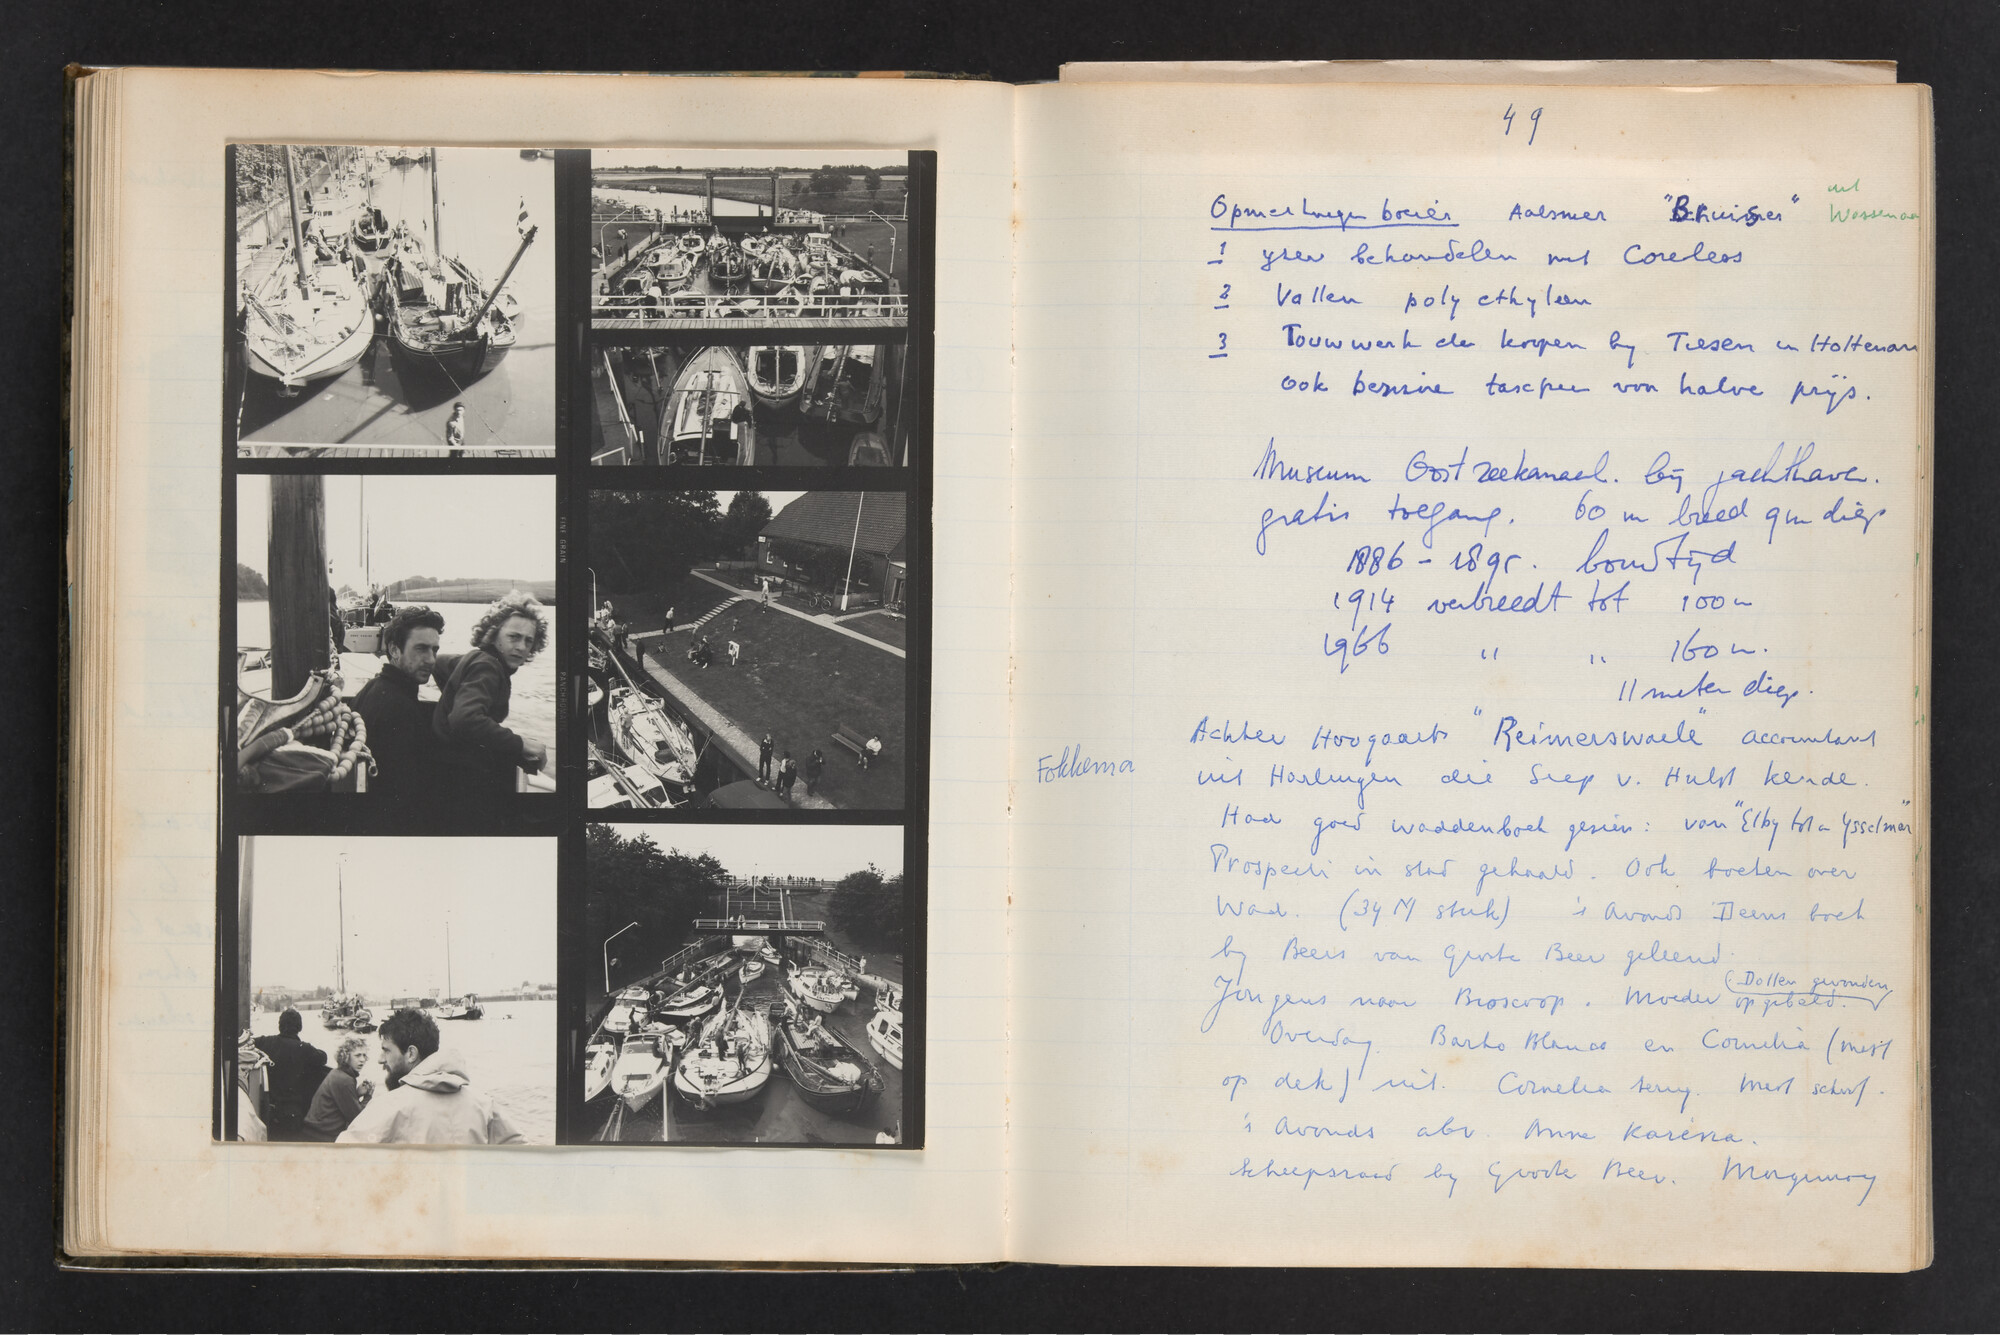 49
Opmerkingen boeier Aalsmeer "Bruis" uit
Wassenaar
1 yser behandelen met Coreless
2 Vallen polyethyleen
3 Touwwerk de kopen by Tiesen in Holtenau
ook benzine tascpen van halve prijs.
Museum Oostzeekanaal. bij jachthaven.
gratis toegang. 60 m breed 9 m diep
1886 - 1895. bouwtijd
1914 verbreedt tot 100 m
1966 " " 160 m.
11 meter diep.
Achter Hoogaarts "Reimerswaele" accountant
Fokkema
uit Harlingen die Siep v. Hulst kende.
Had goed waddenboek gezien: van "Elby tot a Ysselmeer"
Prospecti in stad gehaald. Ook boeken over
Wad. (34 M stuk) 's Avonds Deens boek
by Beers van Grote Beer geleend
(Dollen gevonden)
Jongens naar Bioscoop. Moeder opgebeld.
Overdag Barko Blanco en Cornelia (mast
op dek) uit. Cornelia terug. Mast scheef.
's Avonds abv. Anna Karina.
Scheepsraad by Grote Beer. Morgenvroeg
FINE GRAIN